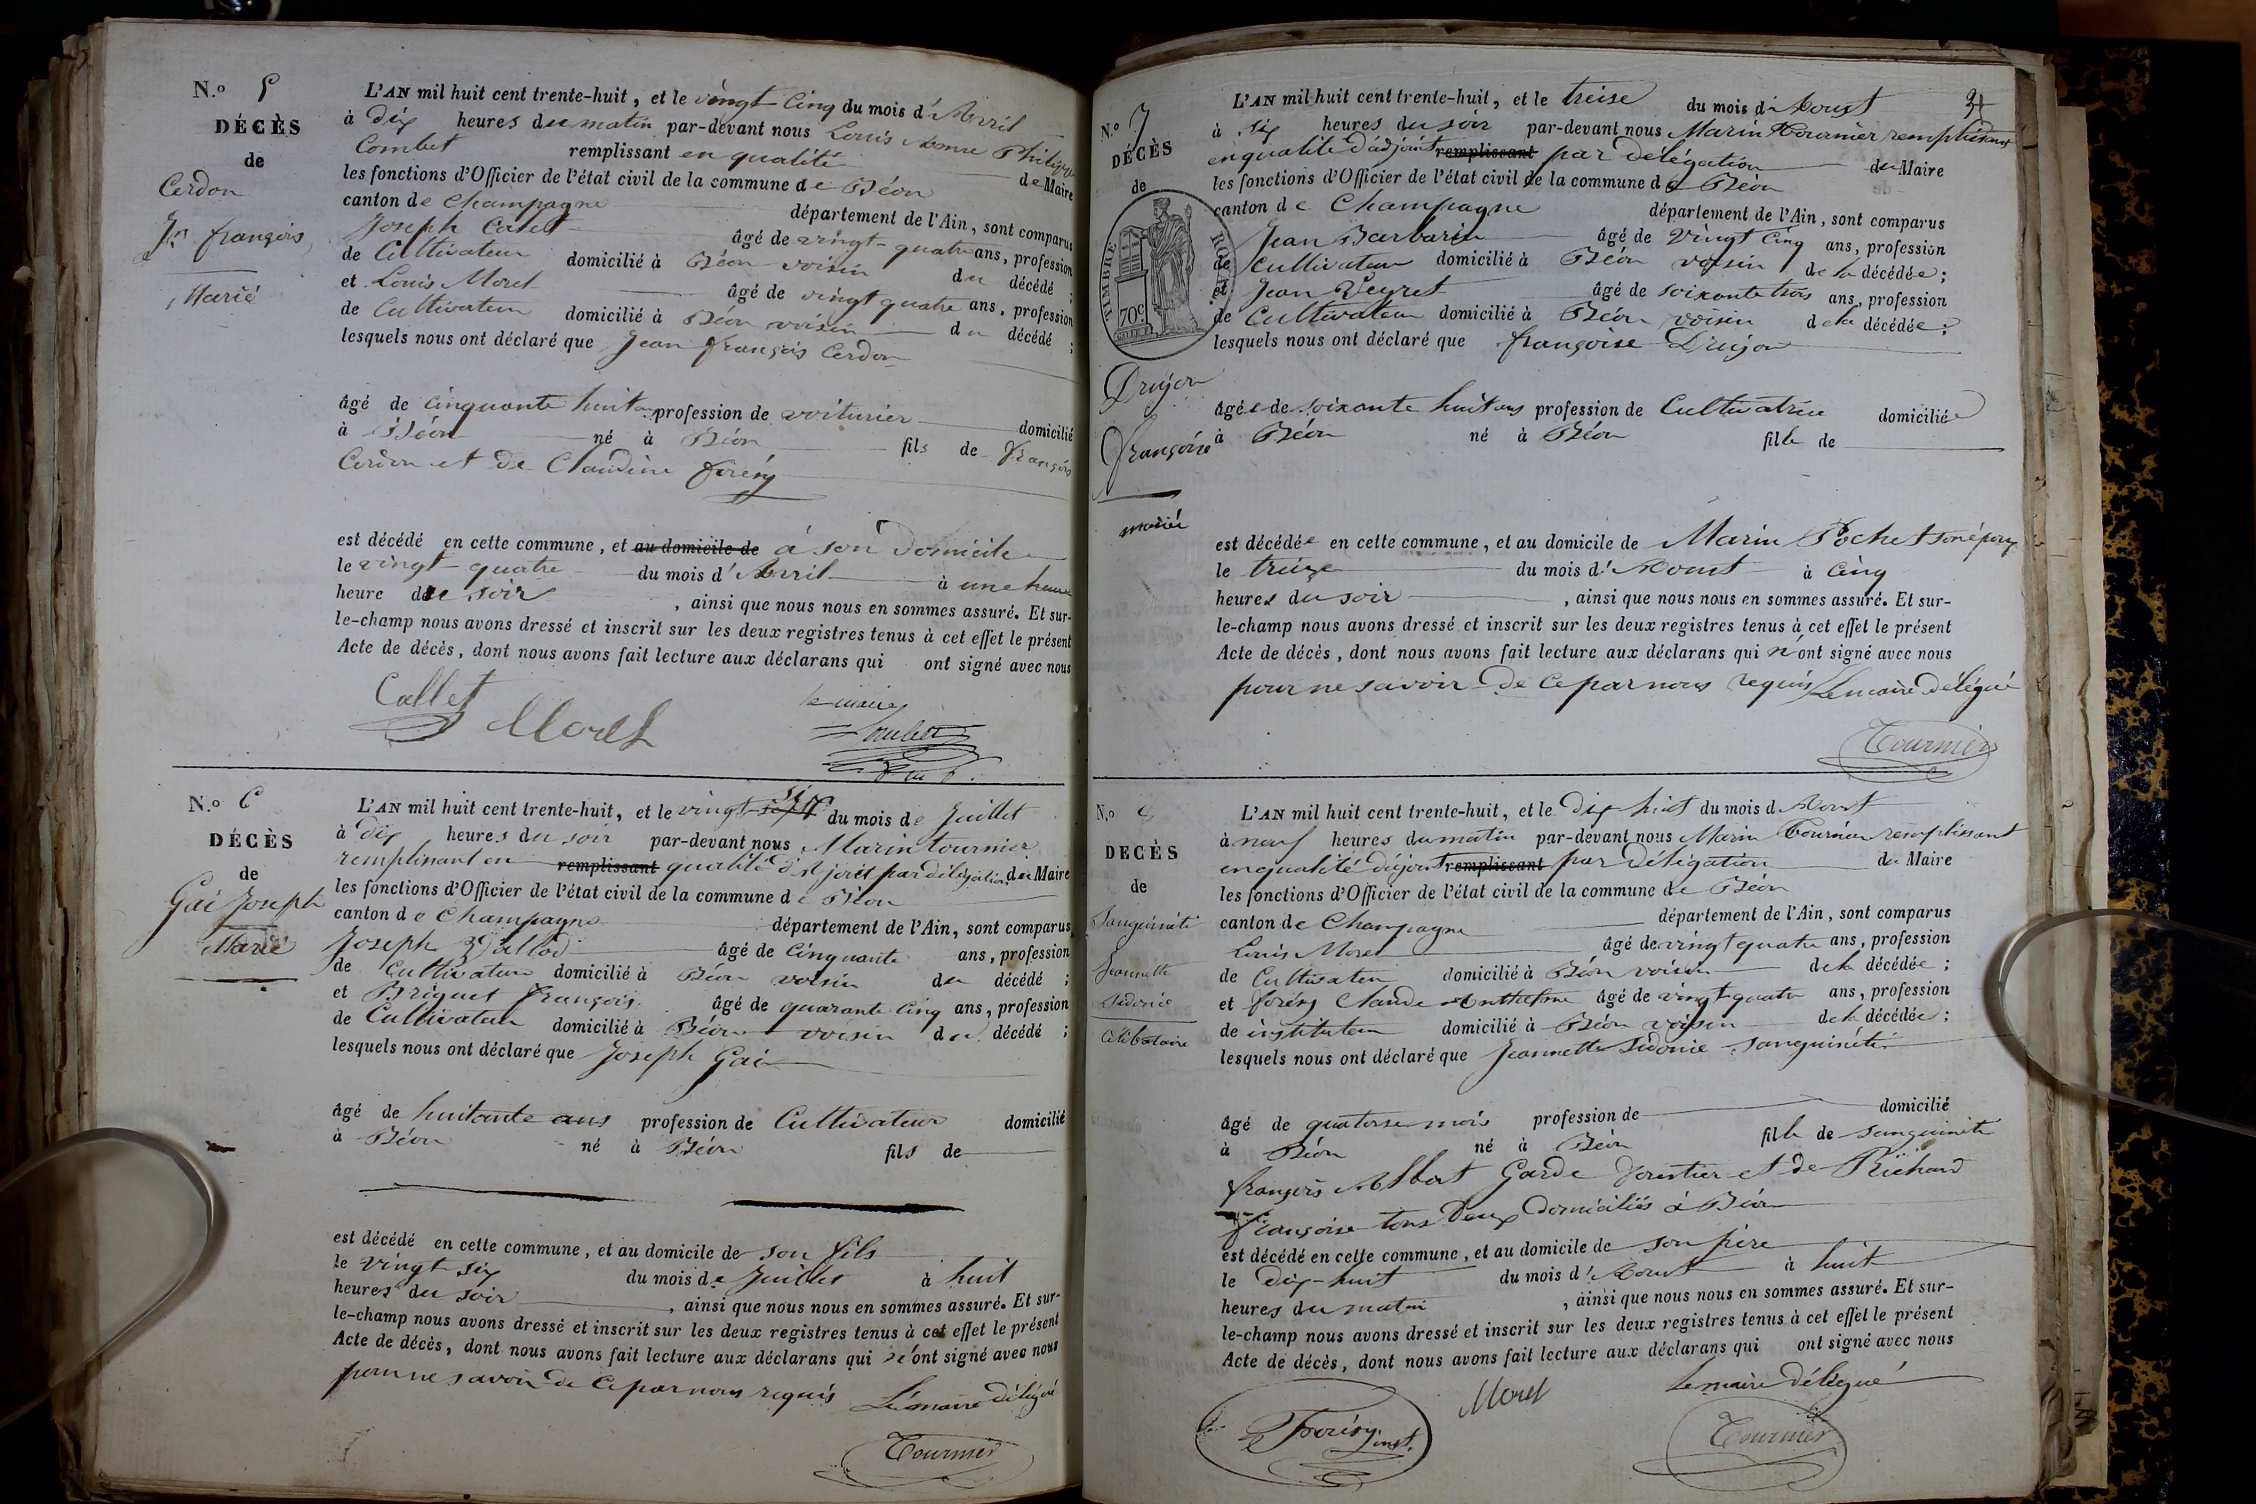 N.o 5
DÉCÈS
de
Cerdon
Jn françois
Marié
L'AN mil huit cent trente-huit, et le vingt-Cinq du mois d'Avril
à dix heures du matin par-devant nous Louis Philippe
Combet remplissant en qualité de Maire
les fonctions d'Officier de l'état civil de la commune de Béon
canton de Champagne département de l'Ain, sont comparus
Joseph Callet âgé de vingt-quatre ans, profession
de Cultivateur domicilié à Béon voisin du décédé ;
et Louis Moret âgé de vingt quatre ans, profession
de Cultivateur domicilié à Béon voisin du décédé ;
lesquels nous ont déclaré que Jean françois Cerdon
âgé de cinquante huit ans profession de voiturier domicilié
à Béon né à Béon fils de françois
Cerdon et de Claudine foréry
est décédé en cette commune, et au domicile de à son Domicile
le vingt-quatre du mois d'Avril à une heure
heure du soir, ainsi que nous nous en sommes assuré. Et sur-
le-champ nous avons dressé et inscrit sur les deux registres tenus à cet effet le présent
Acte de décès, dont nous avons fait lecture aux déclarans qui ont signé avec nous
Callet Moret le maire
Combet
N.o 6
DÉCÈS
de
Gai Joseph
Marié
L'AN mil huit cent trente-huit, et le vingt-sept six du mois de Juillet
à dix heures du soir par-devant nous Marin tournier
remplissant en remplissant qualité d'Adjoint par délégation du Maire
les fonctions d'Officier de l'état civil de la commune de Béon
canton de Champagne département de l'Ain, sont comparus
Joseph âgé de Cinquante ans, profession
de Cultivateur domicilié à Béon voisin du décédé ;
et Briquet françois âgé de quarante cinq ans, profession
de Cultivateur domicilié à Béon voisin du décédé ;
lesquels nous ont déclaré que Joseph Gai
âgé de huitante ans profession de Cultivateur domicilié
à Béon né à Béon fils de
est décédé en cette commune, et au domicile de son fils
le vingt six du mois de Juillet à huit
heures du soir, ainsi que nous nous en sommes assuré. Et sur-
le-champ nous avons dressé et inscrit sur les deux registres tenus à cet effet le présent
Acte de décès, dont nous avons fait lecture aux déclarans qui n'ont signé avec nous
pour ne savoir de ce par nous requis Le maire délégué
Tournier
N.o 7
DÉCÈS
de
TIMBRE ROYAL
70c
Drujon
françoise
mariée
L'AN mil huit cent trente-huit, et le treise du mois d'Aoust
à six heures du soir par-devant nous Marin Tournier remplissant
en qualité d'adjoint remplissant par délégation du Maire
les fonctions d'Officier de l'état civil de la commune de Béon
canton de Champagne département de l'Ain, sont comparus
Jean Barbarin âgé de vingt Cinq ans, profession
de Cultivateur domicilié à Béon voisin de la décédée ;
et Jean Veyret âgé de soixante trois ans, profession
de Cultivateur domicilié à Béon voisin de la décédée ;
lesquels nous ont déclaré que françoise Drujon
âgée de soixante huit ans profession de Cultivatrice domiciliée
à Béon né à Béon fille de
est décédée en cette commune, et au domicile de Marin Pochet son époux
le treize du mois d'Aoust à Cinq
heures du soir, ainsi que nous nous en sommes assuré. Et sur-
le-champ nous avons dressé et inscrit sur les deux registres tenus à cet effet le présent
Acte de décès, dont nous avons fait lecture aux déclarans qui n'ont signé avec nous
pour ne savoir de ce par nous requis Le maire délégué
Tournier
N.o 8
DÉCÈS
de
Sanguinéti
Jeannette
Sidonie
Célibataire
L'AN mil huit cent trente-huit, et le dix-huit du mois d'Aoust
à neuf heures du matin par-devant nous Marin Tournier remplissant
en qualité d'djoint remplissant par délégation du Maire
les fonctions d'Officier de l'état civil de la commune de Béon
canton de Champagne département de l'Ain, sont comparus
Louis Moret âgé de vingt quatre ans, profession
de Cultivateur domicilié à Béon voisin de la décédée ;
et foréry Claude Anthelme âgé de vingt-quatre ans, profession
de instituteur domicilié à Béon voisin de la décédée ;
lesquels nous ont déclaré que Jeannette Sidonie Sanguinéti
âgé de quatorse mois profession de domicilié
à Béon né à Béon fille de Sanguinéti
françois Albert Garde forestier et de Richard
françoise tous deux domiciliés à Béon
est décédé en cette commune, et au domicile de son père
le dix-huit du mois d'Aoust à huit
heures du matin, ainsi que nous nous en sommes assuré. Et sur-
le-champ nous avons dressé et inscrit sur les deux registres tenus à cet effet le présent
Acte de décès, dont nous avons fait lecture aux déclarans qui ont signé avec nous
Foréry inst. Moret Le maire délégué
Tournier